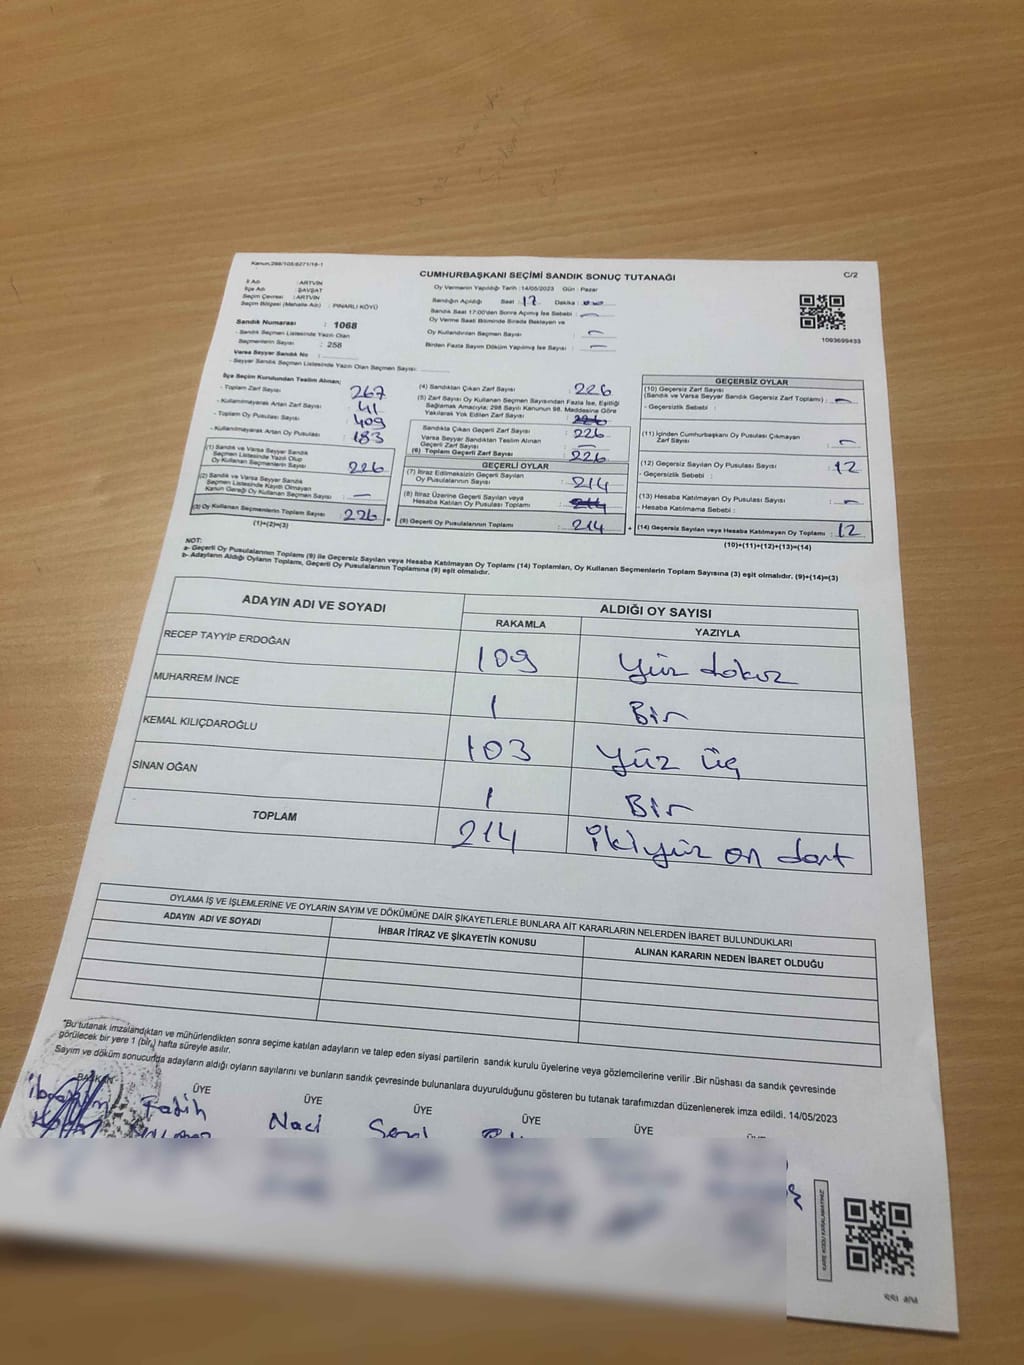 Kanun.298/105/6271/16-1
C/2
CUMHURBAŞKANI SEÇİMİ SANDIK SONUÇ TUTANAĞI
Oy Vermenin Yapıldığı Tarih :14/05/2023 Gün : Pazar
İl Adı : ARTVİN
İlçe Adı : ŞAVŞAT
Seçim Çevresi : ARTVİN
Seçim Bölgesi (Mahalle Adı) : PINARLI KÖYÜ
Sandık Numarası : 1068
- Sandık Seçmen Listesinde Yazılı Olan
Seçmenlerin Sayısı : 258
Varsa Seyyar Sandık No :
- Seyyar Sandık Seçmen Listesinde Yazılı Olan Seçmen Sayısı:
Sandığın Açıldığı Saat : 17 Dakika :
Sandık Saat 17:00'den Sonra Açılmış İse Sebebi : —
Oy Verme Saati Bitiminde Sırada Bekleyen ve
Oy Kullandırılan Seçmen Sayısı : —
Birden Fazla Sayım Döküm Yapılmış İse Sayısı : —
1093699433
İlçe Seçim Kurulundan Teslim Alınan;
- Toplam Zarf Sayısı : 267
- Kullanılmayarak Artan Zarf Sayısı : 41
- Toplam Oy Pusulası Sayısı : 409
- Kullanılmayarak Artan Oy Pusulası : 183
(1) Sandık ve Varsa Seyyar Sandık
Seçmen Listesinde Yazılı Olup
Oy Kullanan Seçmenlerin Sayısı : 226
(2) Sandık ve Varsa Seyyar Sandık
Seçmen Listesinde Kayıtlı Olmayan
Kanun Gereği Oy Kullanan Seçmen Sayısı : —
(3) Oy Kullanan Seçmenlerin Toplam Sayısı : 226
(1)+(2)=(3)
(4) Sandıktan Çıkan Zarf Sayısı : 226
(5) Zarf Sayısı Oy Kullanan Seçmen Sayısından Fazla İse, Eşitliği
Sağlamak Amacıyla; 298 Sayılı Kanunun 98. Maddesine Göre
Yakılarak Yok Edilen Zarf Sayısı :
Sandıkta Çıkan Geçerli Zarf Sayısı : 226
Varsa Seyyar Sandıktan Teslim Alınan
Geçerli Zarf Sayısı : —
(6) Toplam Geçerli Zarf Sayısı : 226
GEÇERLİ OYLAR
(7) İtiraz Edilmeksizin Geçerli Sayılan
Oy Pusulasının Sayısı : 214
(8) İtiraz Üzerine Geçerli Sayılan veya
Hesaba Katılan Oy Pusulası Toplamı :
(9) Geçerli Oy Pusulalarının Toplamı : 214
GEÇERSİZ OYLAR
(10) Geçersiz Zarf Sayısı
(Sandık ve Varsa Seyyar Sandık Geçersiz Zarf Toplamı) : —
- Geçersizlik Sebebi :
(11) İçinden Cumhurbaşkanı Oy Pusulası Çıkmayan
Zarf Sayısı : —
(12) Geçersiz Sayılan Oy Pusulası Sayısı : 12
- Geçersizlik Sebebi :
(13) Hesaba Katılmayan Oy Pusulası Sayısı : —
- Hesaba Katılmama Sebebi :
(14) Geçersiz Sayılan veya Hesaba Katılmayan Oy Toplamı : 12
(10)+(11)+(12)+(13)=(14)
NOT:
a- Geçerli Oy Pusulalarının Toplamı (9) ile Geçersiz Sayılan veya Hesaba Katılmayan Oy Toplamı (14) Toplamları, Oy Kullanan Seçmenlerin Toplam Sayısına (3) eşit olmalıdır. (9)+(14)=(3)
b- Adayların Aldığı Oyların Toplamı, Geçerli Oy Pusulalarının Toplamına (9) eşit olmalıdır.
ADAYIN ADI VE SOYADI
ALDIĞI OY SAYISI
RAKAMLA YAZIYLA
RECEP TAYYİP ERDOĞAN 109 Yüz dokuz
MUHARREM İNCE 1 Bir
KEMAL KILIÇDAROĞLU 103 Yüz üç
SİNAN OĞAN 1 Bir
TOPLAM 214 ikiyüz on dört
OYLAMA İŞ VE İŞLEMLERİNE VE OYLARIN SAYIM VE DÖKÜMÜNE DAİR ŞİKAYETLERLE BUNLARA AİT KARARLARIN NELERDEN İBARET BULUNDUKLARI
ADAYIN ADI VE SOYADI
İHBAR İTİRAZ VE ŞİKAYETİN KONUSU
ALINAN KARARIN NEDEN İBARET OLDUĞU
"Bu tutanak imzalandıktan ve mühürlendikten sonra seçime katılan adayların ve talep eden siyasi partilerin sandık kurulu üyelerine veya gözlemcilerine verilir .Bir nüshası da sandık çevresinde
görülecek bir yere 1 (bir) hafta süreyle asılır.
Sayım ve döküm sonucunda adayların aldığı oyların sayılarını ve bunların sandık çevresinde bulunanlara duyurulduğunu gösteren bu tutanak tarafımızdan düzenlenerek imza edildi. 14/05/2023
BAŞKAN ÜYE ÜYE ÜYE ÜYE ÜYE
İbrahim Fatih Naci